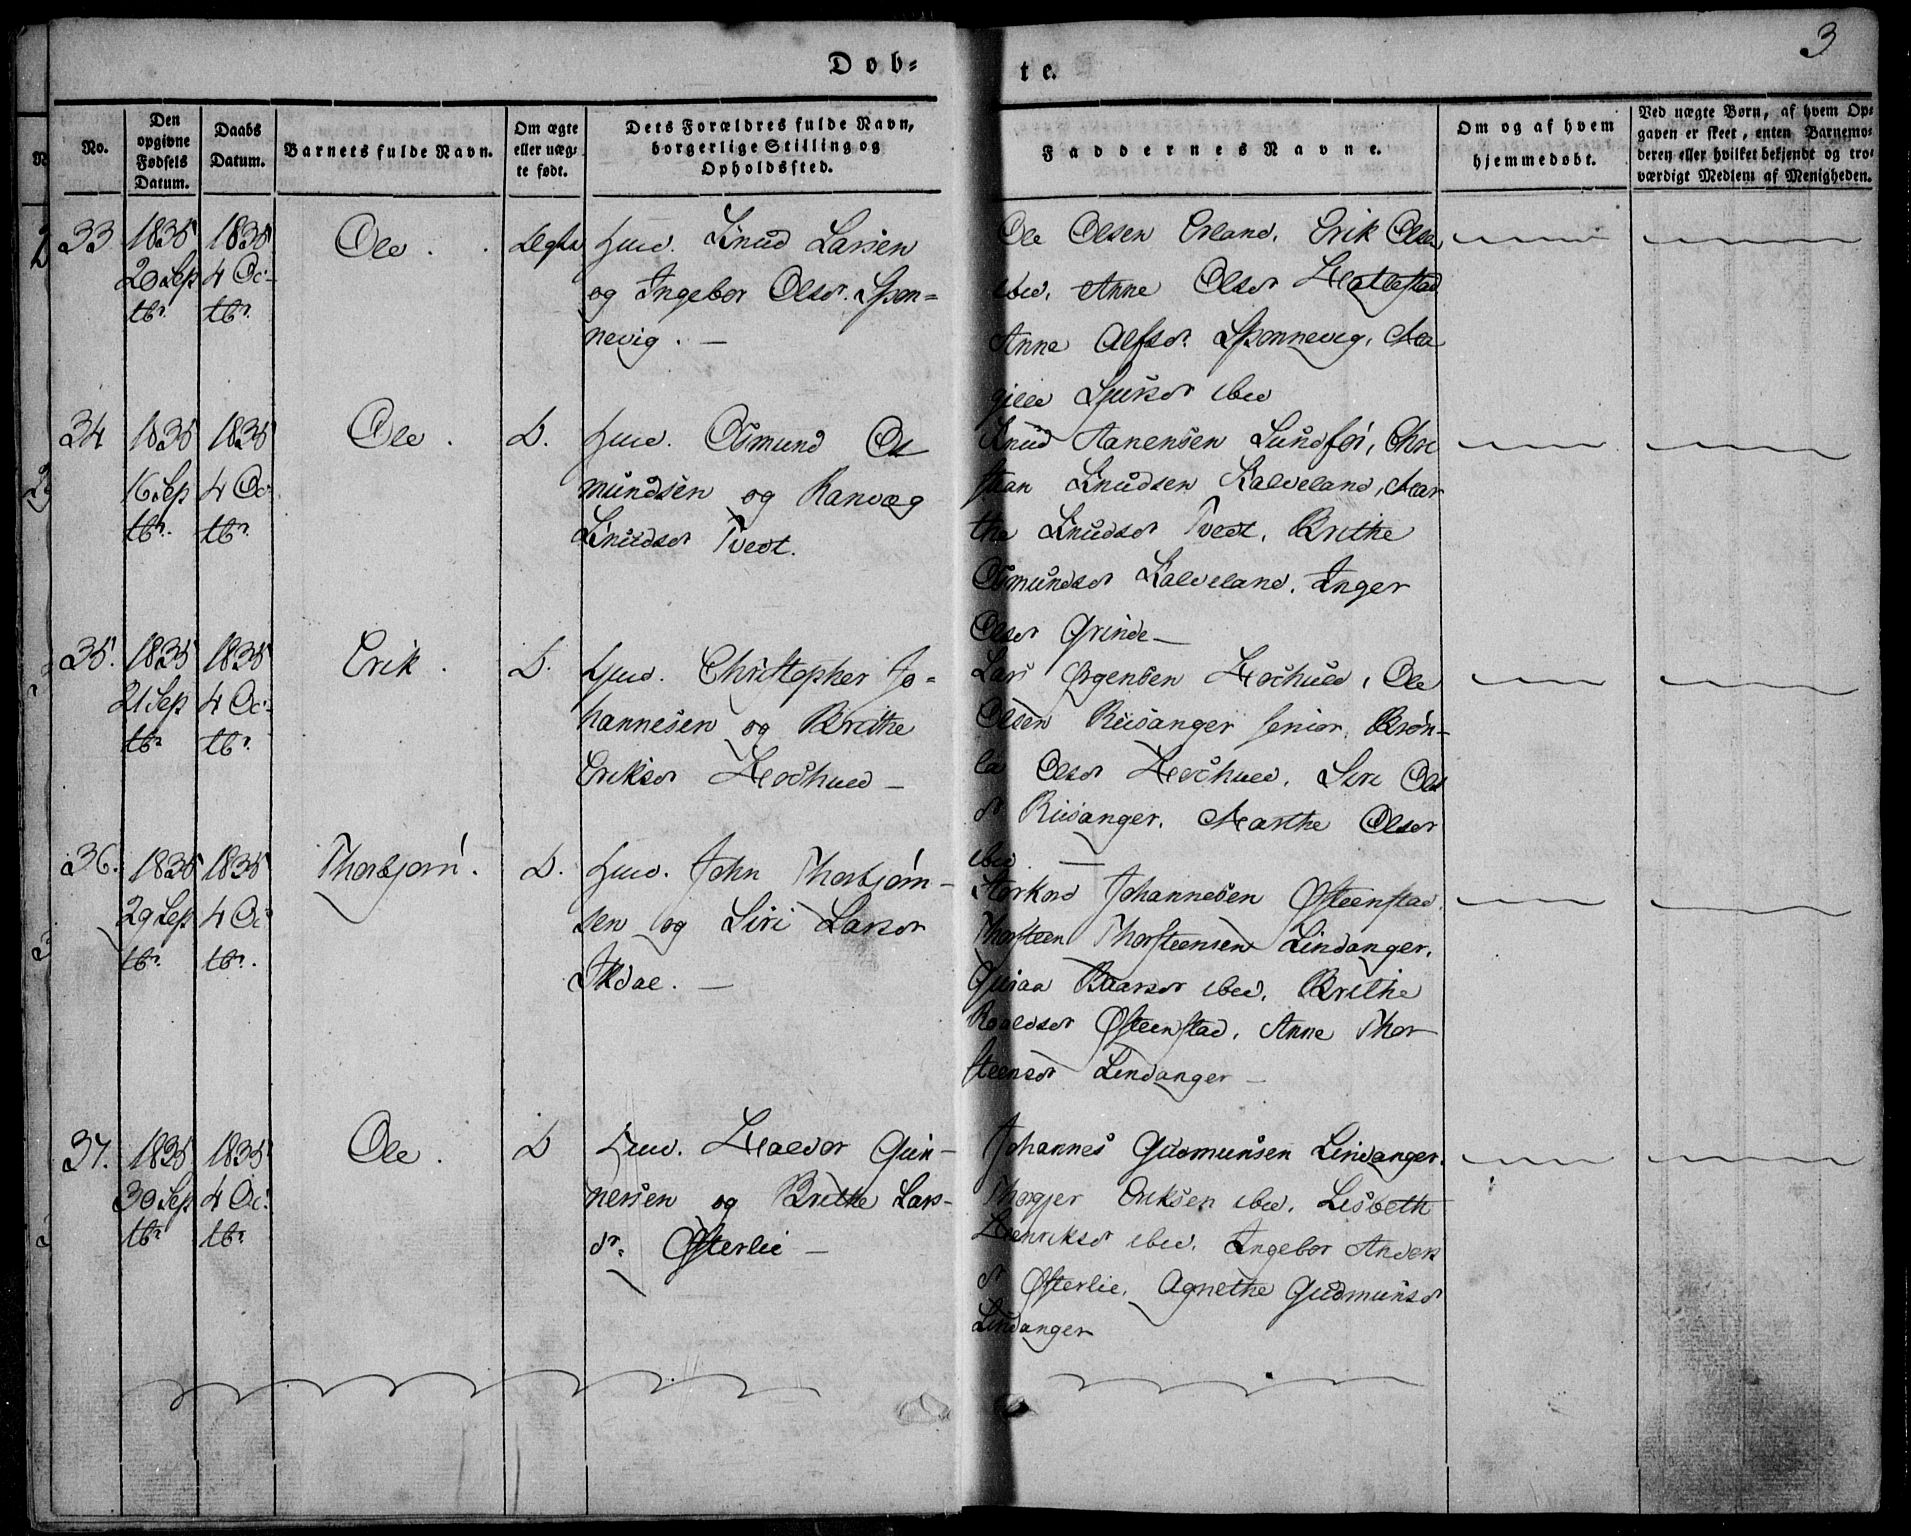 Døb-
te.
3
No.
Den
opgivne
Fødsels
Datum.
Daabs
Datum.
Barnets fulde Navn.
Om ægte
eller uæg-
te født.
Dets Forældres fulde Navn,
borgerlige Stilling og
Opholdssted.
Faddernes Navne.
Om og af hvem
hjemmedøbt.
Ved uægte Børn, af hvem Op-
gaven er skeet, enten Barnemo-
deren eller hvilket bekjendt og tro-
værdigt Medlem af Menigheden.
33
1835
20 Sep
tbr.
1835
4 Oc-
tbr.
Ole.
Ægta
Huud. Knud Larsen
og Ingebor Olsdr. Spon-
nevig. -
Ole Olsen Erland, Erik Olsen
ibid, Anne Olsdr Hatlestad
Anne Alfsdr. Sponnevig, Ma
ibid
34
1835
16 Sep
tbr.
1835
4 Oc
tbr.
Ole.
D.
Huud. Osmund Os
mundsen og Ranvæg
Knudsdr Tvedt.
Knud Aanensen Sundfør, Chri
stian Knudsen Kalveland, Mar
the Knudsdr Tvedt, Brithe
Osmundsdr Kalveland, Inger
Olsdr Grinde -
35.
1835
21 Sep
tbr
1835
4 Oc-
tbr.
Erik.
D.
Huud. Christopher Jo-
hannesen og Brithe
Eriksdr Høshued -
Lars Ørgensen Høshued, Ole
Olsen Riisanger senior, Brøn-
la Olsdr Høshued, Siri Ols
dr Riisanger, Marthe Olsdr
ibid -
36.
1835
29 Sep
tbr.
1835
4 Oc
tbr.
Thorbjørn.
D.
Huud. John Thorbjørn-
sen og Siri Larsdr
Ikdal. -
Storkord Johannesen Østeenstad,
Thorsteen Thorsteensen Lindanger,
Guraa Baarsdr ibid, Brithe
Roaldsdr Østeenstad, Anne Thor
steensdr Lindanger -
37.
1835
30 Sep
tbr
1835
4 Oc.
tbr.
Ole.
D
Huud. Haldor Gun-
nersen og Brithe Lars-
dr. Østerlie -
Johannes Gudmunsen Lindanger,
Thorgjer Eriksen ibid, Lisbeth
Henriksdr ibid, Ingebor Anders
dr Østerlie, Agnethe Gudmunsdr
Lindanger